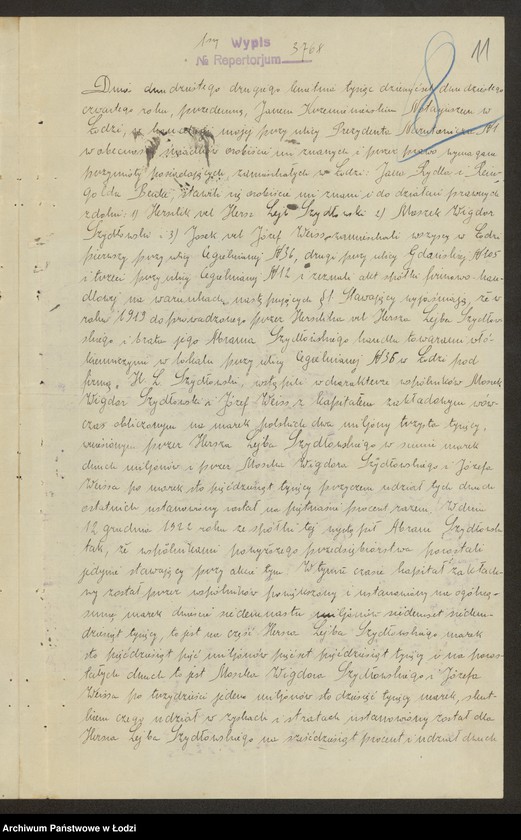 Wypis
№ Repertorjum 3768
11
Dnia dwudziestego drugiego kwietnia tysiąc dziewięćset dwudziestego
czwartego roku, przedemną, Janem Krzemieniewskim Notarjuszem w
Łodzi, w kancelarji mojej przy ulicy Prezydenta Narutowicza №
w obecności świadków osobiście mi znanych i przez prawo wymagane
przymioty posiadających, zamieszkałych w Łodzi: Jana Rydla i
stawili się osobiście mi znani i do działań prawnych
zdolni: 1) Hersz Lejb Szydłowski 2) Moszek Wigdor
Szydłowski i 3) Josek vel Józef Weiss, zamieszkali wszyscy w Łodzi
pierwszy przy ulicy Cegielnianej №36, drugi przy ulicy Gdańskiej №105
i trzeci przy ulicy Cegielnianej №12 i zeznali akt spółki firmowo-han-
dlowej na warunkach następujących §1 Stawający wyjaśniają, że w
roku 1919 do prowadzonego przez vel Hersza Lejba Szydłow-
skiego i brata jego Abrama Szydłowskiego handlu towarami włó-
kienniczymi w lokalu przy ulicy Cegielnianej №36 w Łodzi pod
firmą „H. L. Szydłowski" wstąpili w charakterze wspólników Moszek
Wigdor Szydłowski i Józef Weiss, z kapitałem zakładowym wów-
czas obliczonym na marek polskich dwa miljony trzysta tysięcy,
wniesionym przez Hersza Lejba Szydłowskiego w sumie marek
dwuch miljonów i przez Moszka Wigdora Szydłowskiego i Józefa
Weissa po marek sto pięćdziesiąt tysięcy przyczem udział tych dwuch
ostatnich ustanowiony został na piętnaście procent razem. W dniu
12 grudnia 1922 roku ze spółki tej wystąpił Abram Szydłowski
tak, że wspólnikami powyższego przedsiębiorstwa pozostali
jedynie stawający przy akcie tym. W tymże czasie kapitał zakłado-
wy został przez wspólników powiększony i ustanowiony na ogólną
sumę marek dwieście siedemnaście miljonów siedemset siedem-
dziesiąt tysięcy, to jest na część Hersza Lejba Szydłowskiego marek
sto pięćdziesiąt pięć miljonów pięćset pięćdziesiąt tysięcy a na pozos-
tałych dwuch to jest Moszka Wigdora Szydłowskiego i Józefa
Weissa po trzydzieści jeden miljonów sto dziesięć tysięcy marek, skut-
kiem czego udział w zyskach i stratach ustanowiony został dla
Hersza Lejba Szydłowskiego na sześćdziesiąt procent i udział dwuch
Archiwum Państwowe w Łodzi